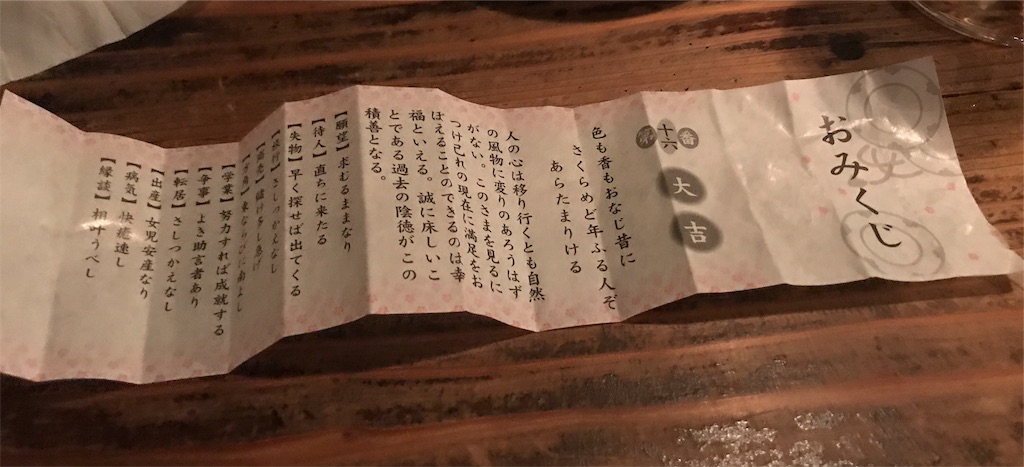 おみくじ
第十六番
大吉
色も香もおなじ昔に
さくらめど年ふる人ぞ
あらたまりける
人の心は移り行くとも自然
の風物に変りのあろうはず
がない。このさまを見るに
つけ己れの現在に満足をお
ぼえることのできるのは幸
福といえる。誠に床しいこ
とである過去の陰徳がこの
積善となる。
【願望】求むるままなり
【待人】直ちに来たる
【失物】早く探せば出てくる
【旅行】さしつかえなし
【商売】
【学業】努力すれば成就する
【争事】よき助言者あり
【転居】さしつかえなし
【出産】女児安産なり
【病気】快癒速し
【縁談】相叶うべし